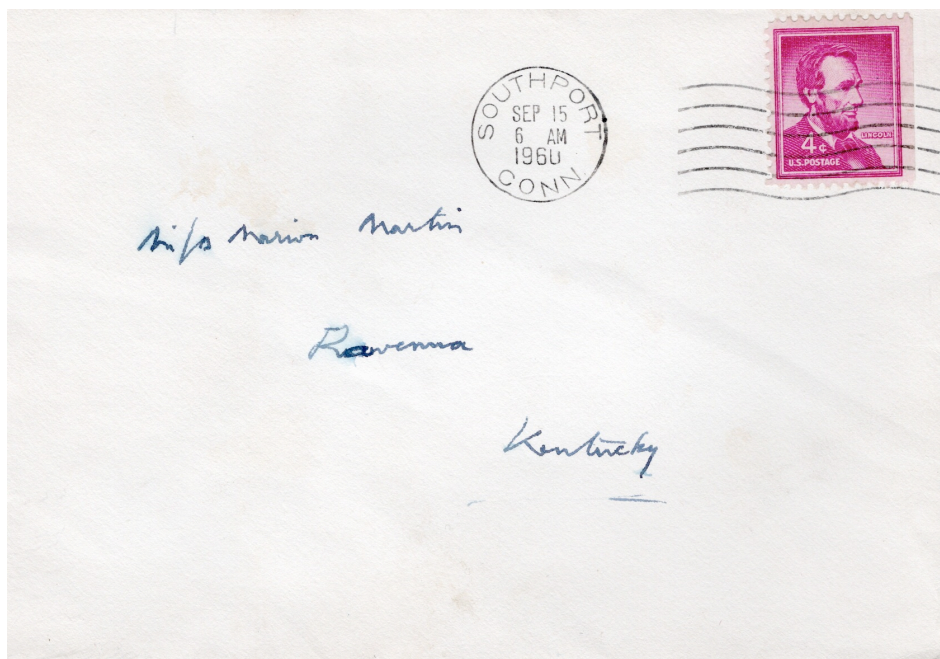 SOUTHPORT
SEP 15
6 AM
1960
CONN.
LINCOLN
4¢
U.S. POSTAGE
Miss Marion Martin
Ravenna
Kentucky